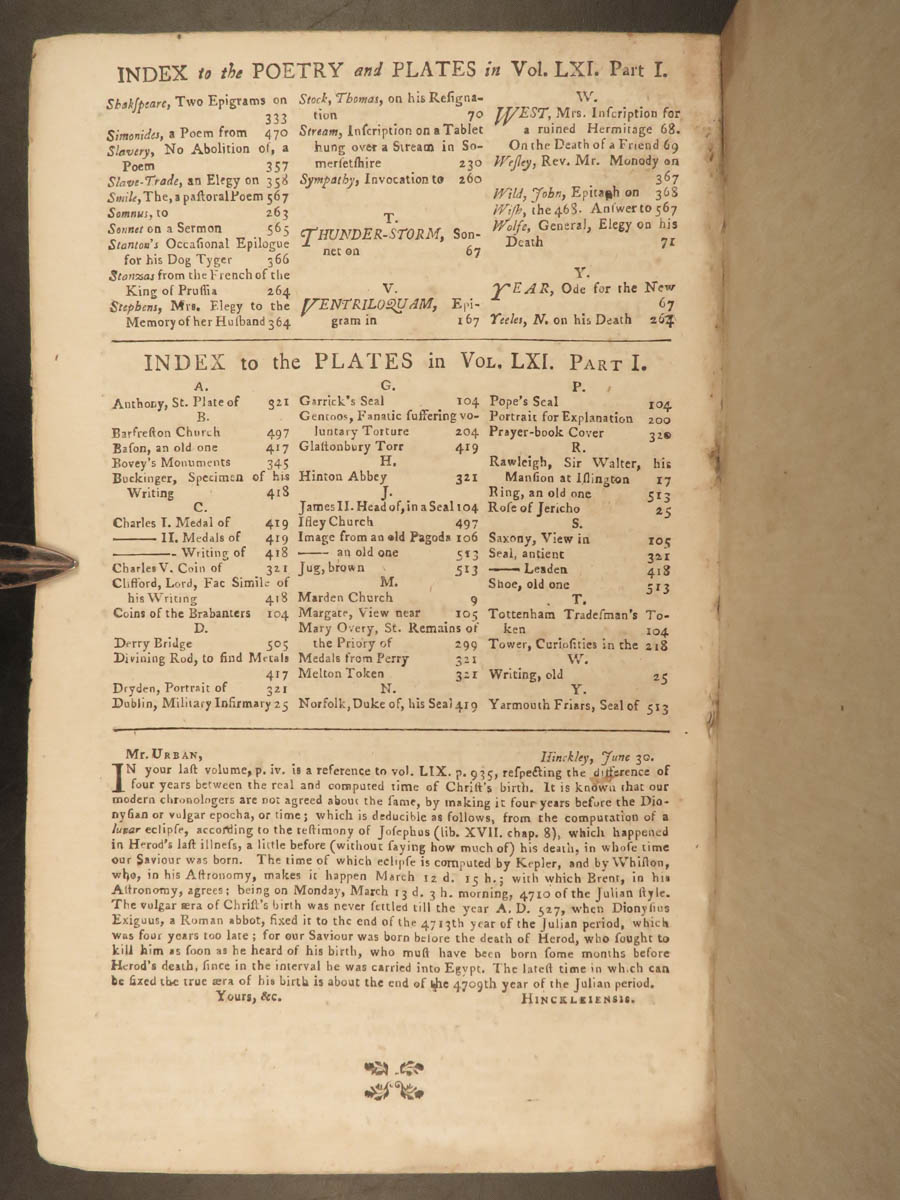 INDEX to the POETRY and PLATES in Vol. LXI. Part I.
Shakſpeare, Two Epigrams on
333
Simonides, a Poem from 470
Slavery, No Abolition of, a
Poem 357
Slave-Trade, an Elegy on 358
Smile, The, a paſtoral Poem 567
Somnus, to 263
Sonnet on a Sermon 565
Stanton's Occaſional Epilogue
for his Dog Tyger 366
Stanzas from the French of the
King of Pruſſia 264
Stephens, Mrs. Elegy to the
Memory of her Huſband 364
Stock, Thomas, on his Reſigna-
tion 70
Stream, Inſcription on a Tablet
hung over a Stream in So-
merſetſhire 230
Sympathy, Invocation to 260
T.
THUNDER-STORM, Son-
net on 67
V.
VENTRILOQUAM, Epi-
gram in 167
W.
WEST, Mrs. Inſcription for
a ruined Hermitage 68.
On the Death of a Friend 69
Weſley, Rev. Mr. Monody on
367
Wild, John, Epitaph on 368
Wiſh, the 468. Anſwer to 567
Wolfe, General, Elegy on his
Death 71
Y.
YEAR, Ode for the New
67
Yeeles, N. on his Death 264
INDEX to the PLATES in VOL. LXI. PART I.
A.
Anthony, St. Plate of 321
B.
Barfreſton Church 497
Baſon, an old one 417
Bovey's Monuments 345
Buckinger, Specimen of his
Writing 418
C.
Charles I. Medal of 419
—— II. Medals of 419
———- Writing of 418
Charles V. Coin of 321
Clifford, Lord, Fac Simile of
his Writing 418
Coins of the Brabanters 104
D.
Derry Bridge 505
Divining Rod, to find Metals
417
Dryden, Portrait of 321
Dublin, Military Infirmary 25
G.
Garrick's Seal 104
Gentoos, Fanatic ſuffering vo-
luntary Torture 204
Glaſtonbury Torr 419
H.
Hinton Abbey 321
J.
James II. Head of, in a Seal 104
Ifley Church 497
Image from an old Pagoda 106
—— an old one 513
Jug, brown 513
M.
Marden Church 9
Margate, View near 105
Mary Overy, St. Remains of
the Priory of 299
Medals from Perry 321
Melton Token 321
N.
Norfolk, Duke of, his Seal 419
P.
Pope's Seal 104
Portrait for Explanation 200
Prayer-book Cover 320
R.
Rawleigh, Sir Walter, his
Manſion at Iſlington 17
Ring, an old one 513
Roſe of Jericho 25
S.
Saxony, View in 105
Seal, antient 321
—— Leaden 418
Shoe, old one 513
T.
Tottenham Tradeſman's To-
ken 104
Tower, Curioſities in the 218
W.
Writing, old 25
Y.
Yarmouth Friars, Seal of 513
Mr. URBAN, Hinckley, June 30.
IN your laſt volume, p. iv. is a reference to vol. LIX. p. 935, reſpecting the difference of
four years between the real and computed time of Chriſt's birth. It is known that our
modern chronologers are not agreed about the ſame, by making it four years before the Dio-
nyſian or vulgar epocha, or time; which is deducible as follows, from the computation of a
lunar eclipſe, according to the teſtimony of Joſephus (lib. XVII. chap. 8), which happened
in Herod's laſt illneſs, a little before (without ſaying how much of) his death, in whoſe time
our Saviour was born. The time of which eclipſe is computed by Kepler, and by Whiſton,
who, in his Aſtronomy, makes it happen March 12 d. 15 h.; with which Brent, in his
Aſtronomy, agrees; being on Monday, March 13 d. 3 h. morning, 4710 of the Julian ſtyle.
The vulgar æra of Chriſt's birth was never ſettled till the year A. D. 527, when Dionyſius
Exiguus, a Roman abbot, fixed it to the end of the 4713th year of the Julian period, which
was four years too late; for our Saviour was born before the death of Herod, who ſought to
kill him as ſoon as he heard of his birth, who muſt have been born ſome months before
Herod's death, ſince in the interval he was carried into Egypt. The lateſt time in which can
be fixed the true æra of his birth is about the end of the 4709th year of the Julian period.
Yours, &c. HINCKLEIENSIS.